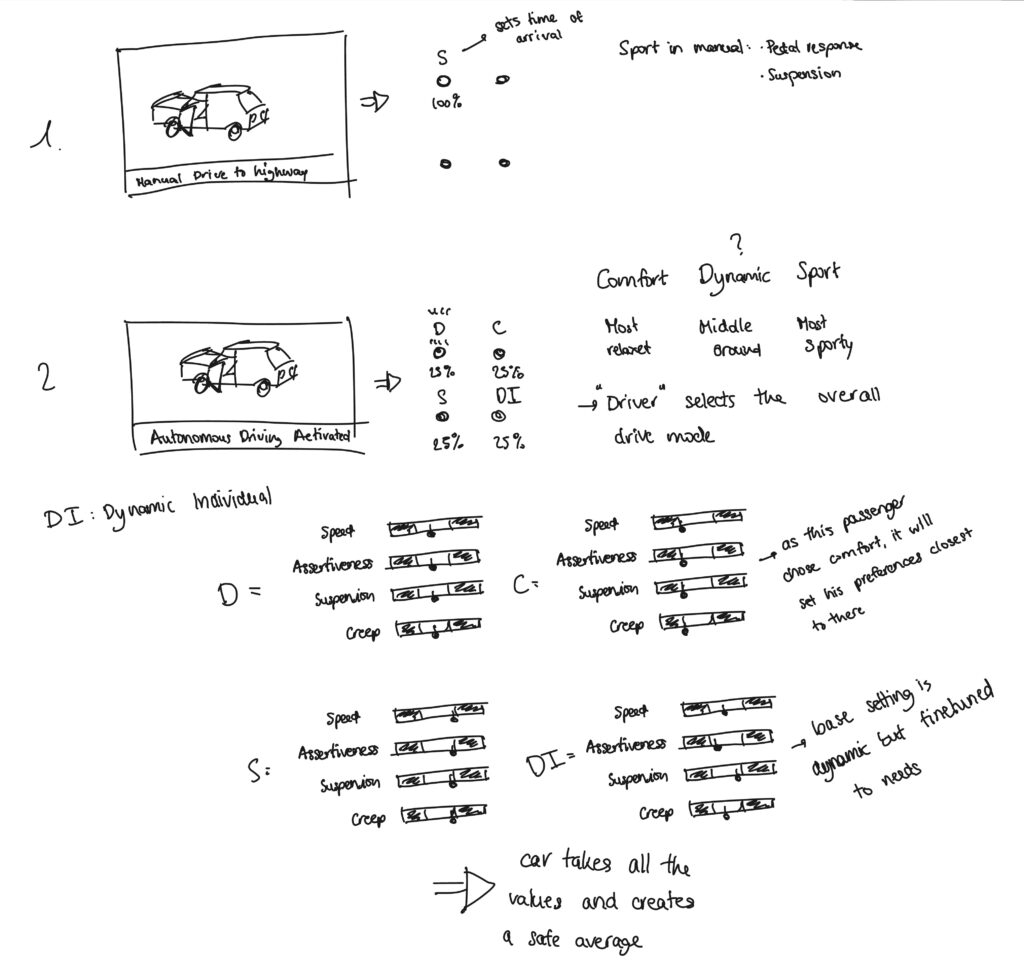 1.
Manual Drive to highway
S
100%
sets time of
arrival
Sport in manual: · Pedal response
· Suspension
2
Autonomous Driving Activated
D C
25% 25%
S DI
25% 25%
?
Comfort Dynamic Sport
Most Middle Most
relaxet Ground Sporty
→ "Driver" selects the overall
drive mode
DI: Dynamic Individual
D =
Speed
Assertiveness
Suspension
Creep
C=
Speed
Assertiveness
Suspension
Creep
→ as this passenger
chose comfort, it will
set his preferences closest
to there
S:
Speed
Assertiveness
Suspension
Creep
DI=
Speed
Assertiveness
Suspension
Creep
→ base setting is
dynamic but finetuned
to needs
⇒ car takes all the
values and creates
a safe average